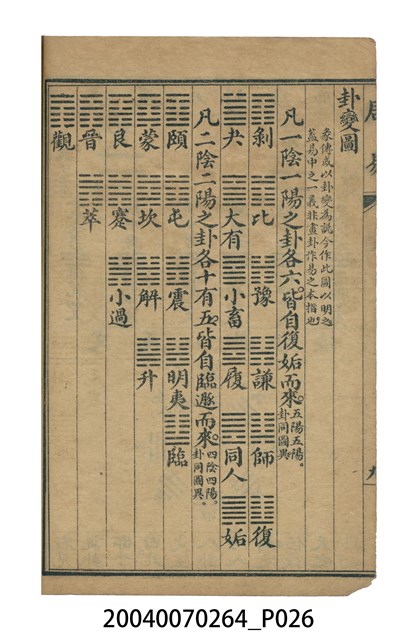 卦變圖
彖傳或以卦變為說今作此圖以明之
蓋易中之一義非畫卦作易之本指也
凡一陰一陽之卦各六皆自復姤而來。五陽五陽。卦同圖異
剝 比 豫 謙 師 復
夬 大有 小畜 履 同人 姤
凡二陰二陽之卦各十有五皆自臨遯而來。四陰四陽。卦同圖異。
頤 屯 震 明夷 臨
蒙 坎 解 升
艮 蹇 小過
晉 萃
觀
20040070264_P026